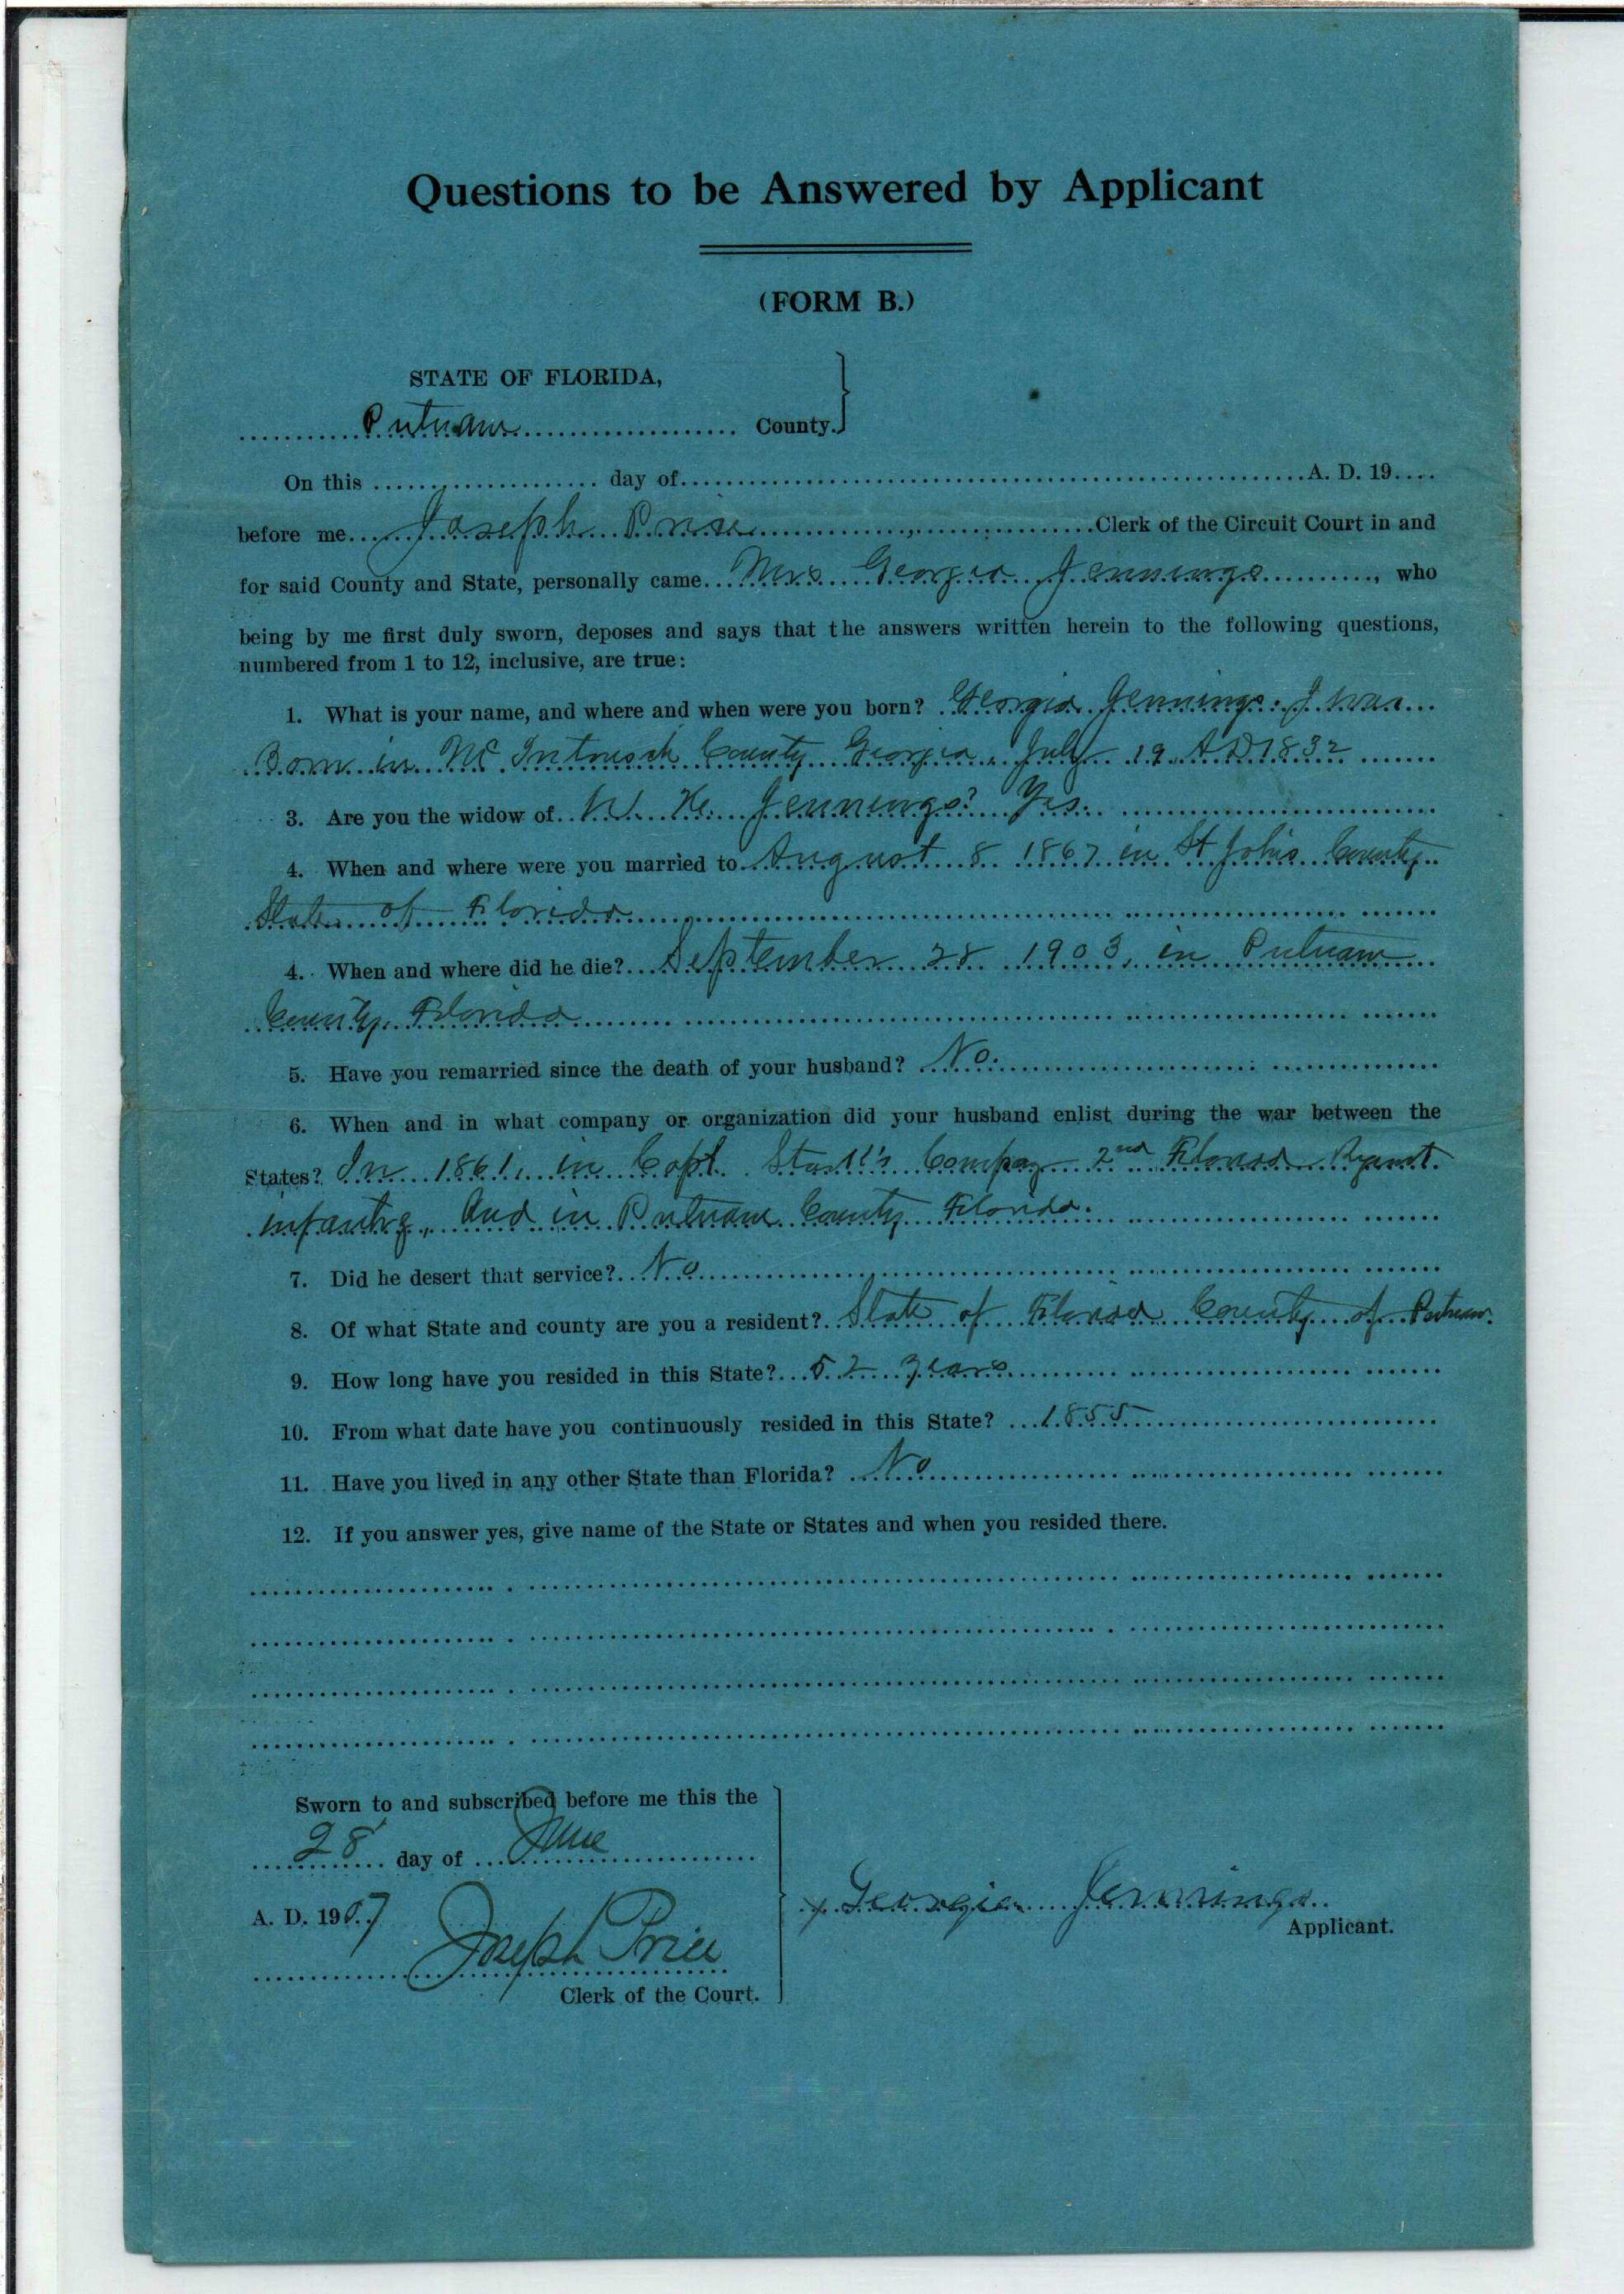 Questions to be Answered by Applicant
(FORM B.)
STATE OF FLORIDA,
Putnam County.
On this day of A. D. 19
before me Joseph Price Clerk of the Circuit Court in and
for said County and State, personally came Mrs Georgia Jennings, who
being by me first duly sworn, deposes and says that the answers written herein to the following questions,
numbered from 1 to 12, inclusive, are true:
1. What is your name, and where and when were you born? Georgia Jennings. I was
Born in Mc Intrusch County Georgia, July 19 AD 1832
3. Are you the widow of W. H. Jennings? Yes.
4. When and where were you married to August 8 1867 in St Johns County
State of Florida
4. When and where did he die? September 28 1903, in Putnam
County, Florida
5. Have you remarried since the death of your husband? No.
6. When and in what company or organization did your husband enlist during the war between the
States? In 1861, in Capt. Company 2nd Florida
infantry, And in Putnam County Florida.
7. Did he desert that service? No
8. Of what State and county are you a resident? State of Florida County of Putnam.
9. How long have you resided in this State? 52 years
10. From what date have you continuously resided in this State? 1855
11. Have you lived in any other State than Florida? No
12. If you answer yes, give name of the State or States and when you resided there.
Sworn to and subscribed before me this the
28 day of June
A. D. 1907
x Georgia Jennings
Applicant.
Joseph Price
Clerk of the Court.